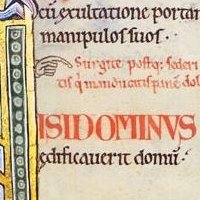 cū exultatione portan
manipulos suos.
Surgite postq̄ sederi
tis q̄ manducatis panē dol
NISI DOMINVS
edificauerit domū